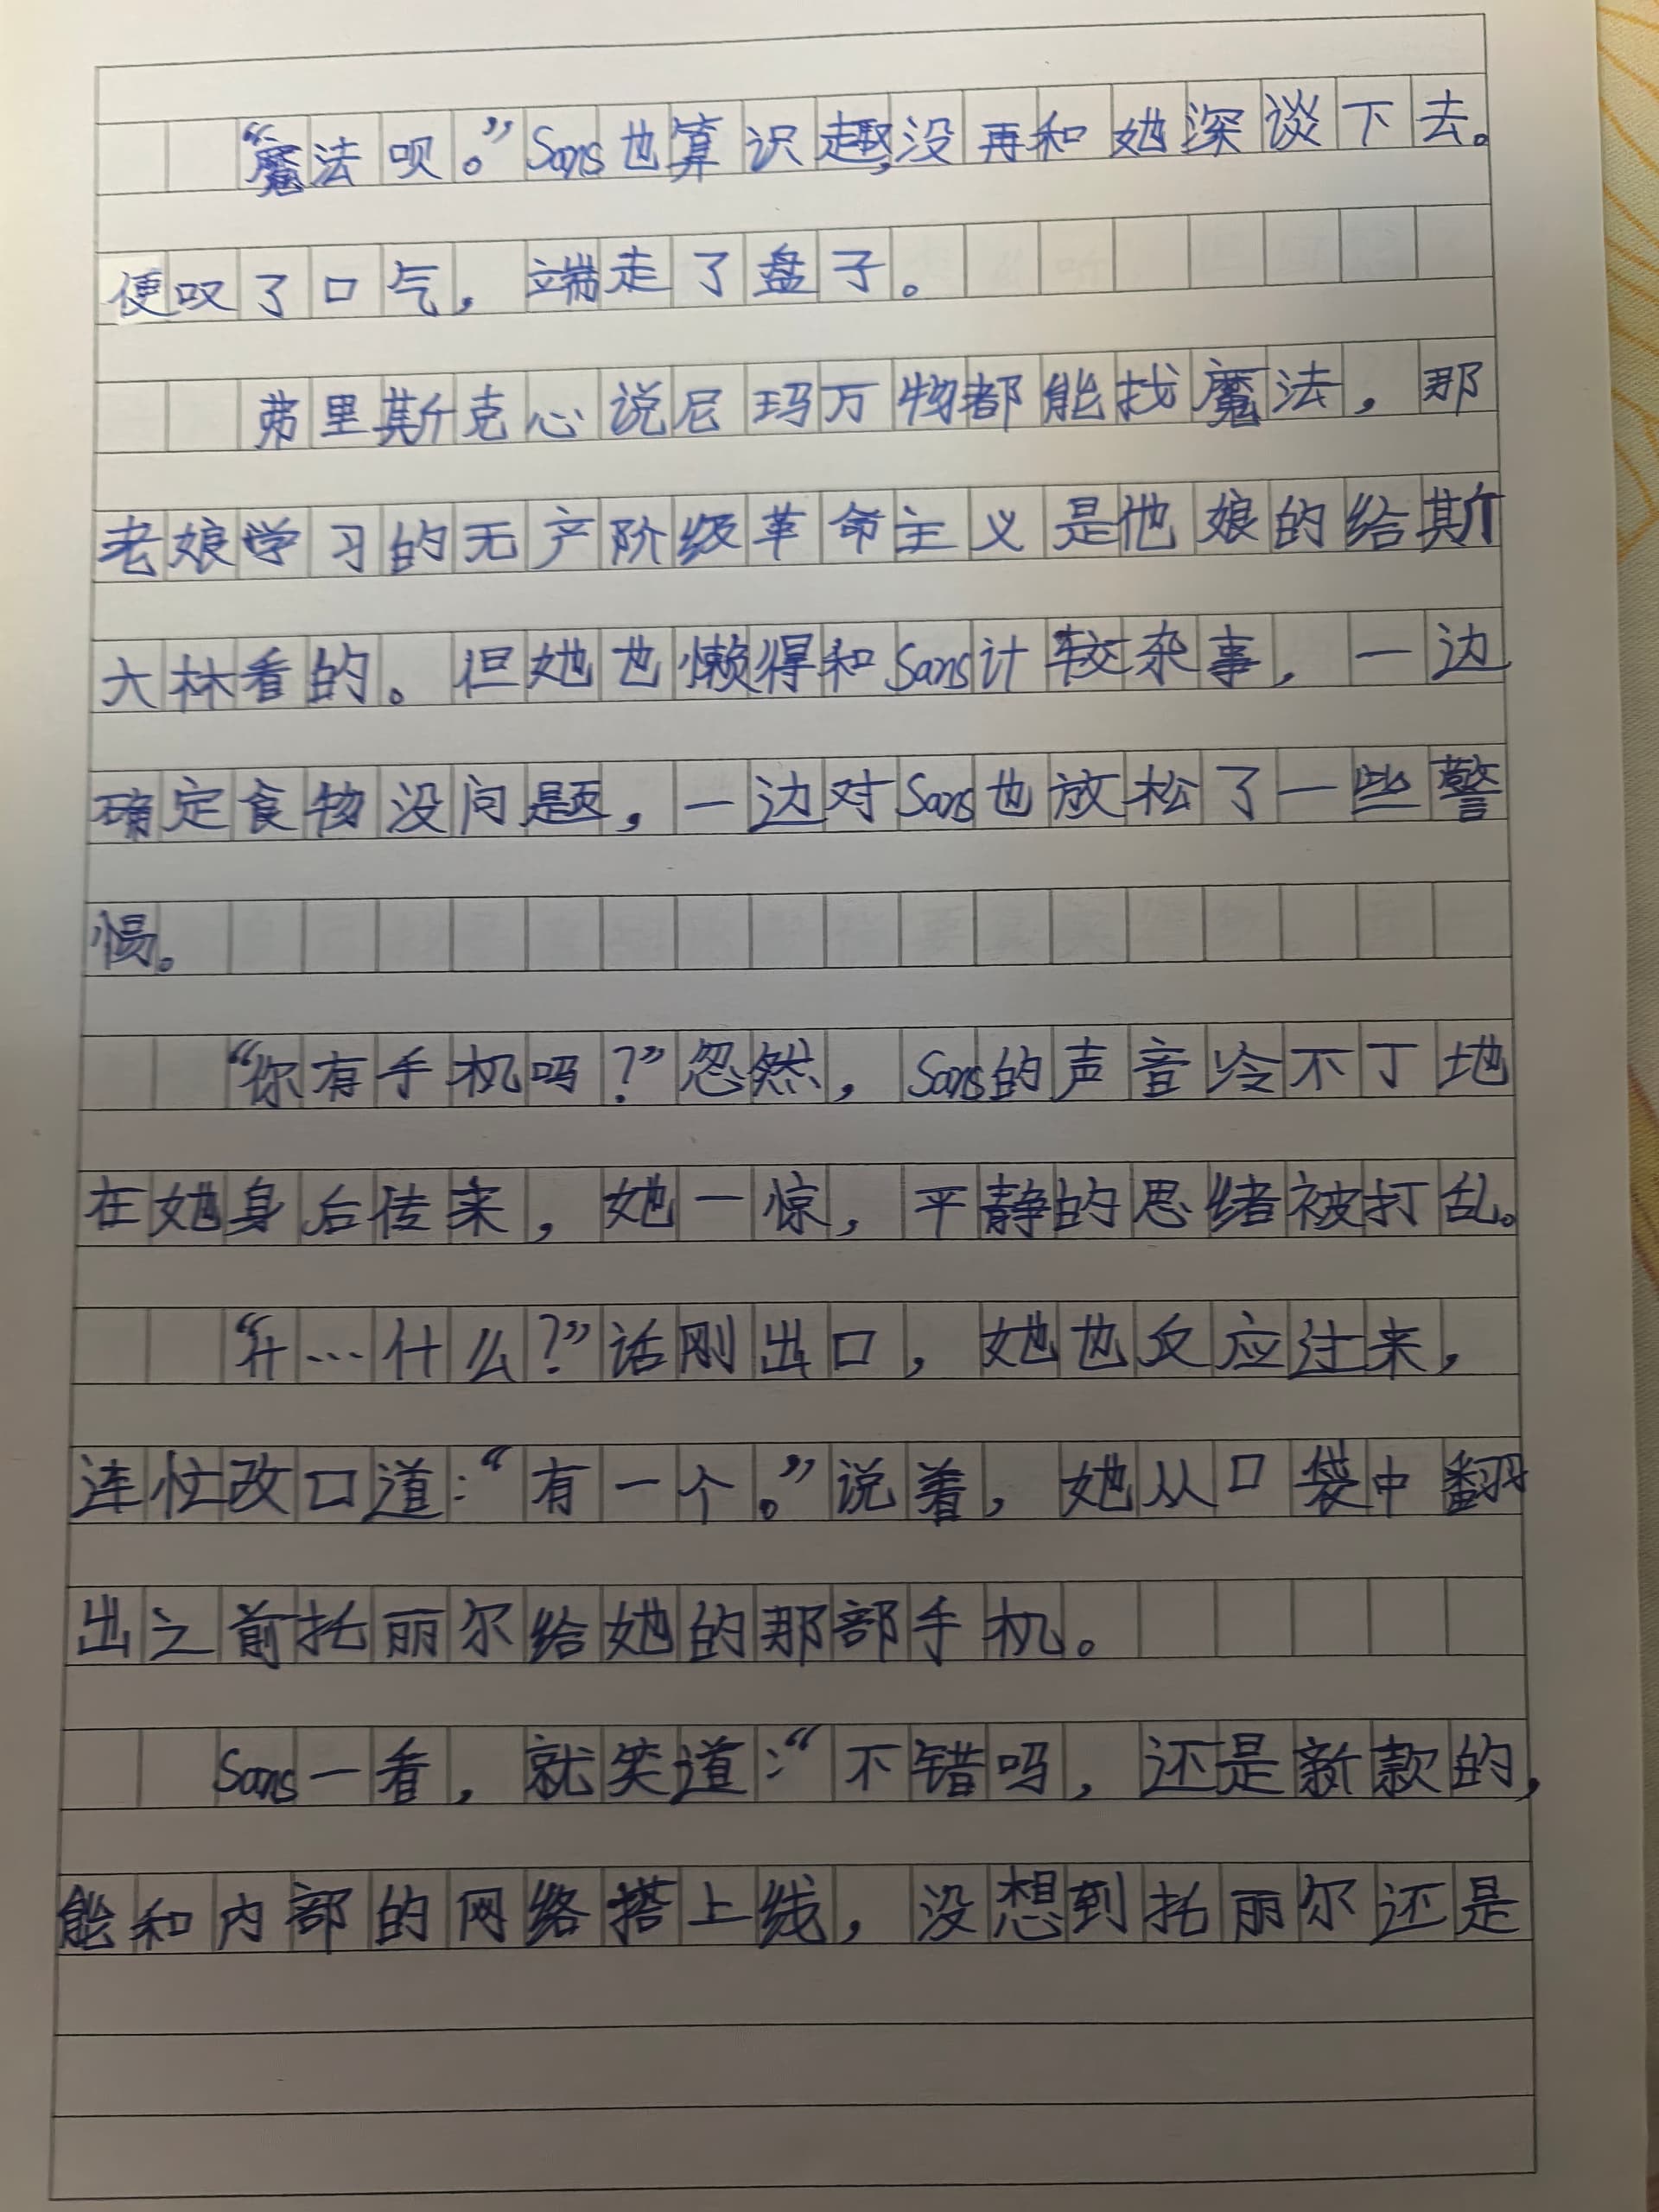 “魔法呗。”Sans也算识趣,没再和她深谈下去。
便叹了口气，端走了盘子。
弗里斯克心说尼玛万物都能找魔法，那
老娘学习的无产阶级革命主义是他娘的给斯
大林看的。但她也懒得和Sans计较杂事，一边
确定食物没问题，一边对Sans也放松了一些警
惕。
“你有手机吗？”忽然，Sans的声音冷不丁地
在她身后传来，她一惊，平静的思绪被打乱。
“什…什么？”话刚出口，她也反应过来，
连忙改口道：“有一个。”说着，她从口袋中翻
出之前托丽尔给她的那部手机。
Sans一看，就笑道：“不错吗，还是新款的，
能和内部的网络搭上线，没想到托丽尔还是